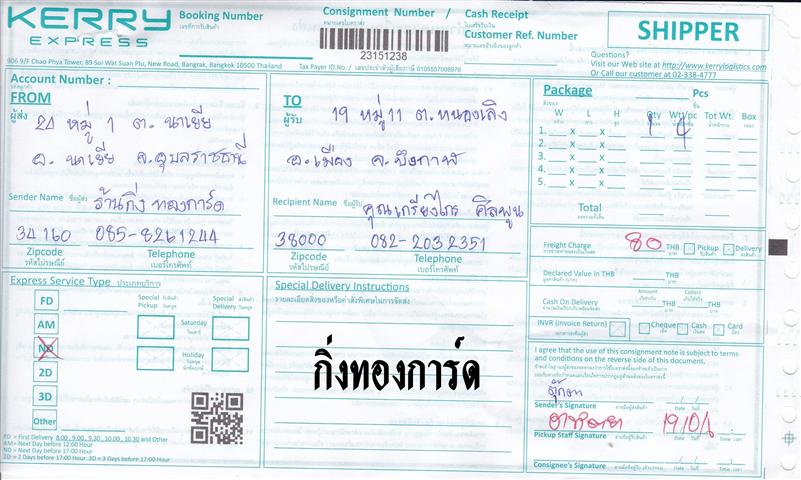 KERRY
EXPRESS
Booking Number
เลขที่การรับสินค้า
Consignment Number /
หมายเลขใบตราส่ง
23151238
Cash Receipt
ใบเสร็จรับเงิน
Customer Ref. Number
หมายเลขอ้างอิงของลูกค้า
SHIPPER
906 9/F Chao Phya Tower, 89 Soi Wat Suan Plu, New Road, Bangrak, Bangkok 10500 Thailand
Tax Payer ID.No. / เลขประจำตัวผู้เสียภาษี 0105557008976
Questions?
Visit our Web site at http://www.kerrylogistics.com
Or Call our customer at 02-338-4777
Account Number :
รหัสลูกค้า
FROM
ผู้ส่ง
20 หมู่ 1 ต. นาเยีย
อ. นาเยีย จ.อุบลราชธานี
Sender Name ชื่อผู้ส่ง ร้านกิ่ง ทองการ์ด
34160 085-8261244
Zipcode
รหัสไปรษณีย์
Telephone
เบอร์โทรศัพท์
TO
ผู้รับ
19 หมู่ 11 ต.หนองเลิง
อ.เมือง จ.บึงกาฬ
Recipient Name ชื่อผู้รับ คุณเกรียงไกร ศิลพูน
38000 082-2032351
Zipcode
รหัสไปรษณีย์
Telephone
เบอร์โทรศัพท์
Package
Pcs
ชิ้น
W L H Qty Wt/pc Tot Wt. Box
1. x x 1 4
2. x x
3. x x
4. x x
5. x x
Total
Freight Charge 80 THB Pickup Delivery
Declared Value in THB THB
Amount Collect
Cash On Delivery THB THB
INVR (Invoice Return) Cheque Cash Card
Express Service Type ประเภทบริการ
FD
AM
ND
2D
3D
Other
Special Pickup
Special Delivery
Saturday
วันเสาร์
Holiday
วันหยุด
นักขัตฤกษ์
FD = First Delivery 8.00 , 9.00 , 9.30 , 10.00 , 10.30 and Other
AM= Next Day before 12:00 Hour
ND = Next Day before 17:00 Hour
2D = 2 Days before 17:00 Hour: 3D = 3 Days before 17:00 Hour
Special Delivery Instructions
รายละเอียดสิ่งของหรือคำสั่งพิเศษในการจัดส่ง
กิ่งทองการ์ด
I agree that the use of this consignment note is subject to terms
and conditions on the reverse side of this document.
ตุ๊กตา
Sender's Signature Date
19/01/
Pickup Staff Signature Date Time
Consignee's Signature Date Time